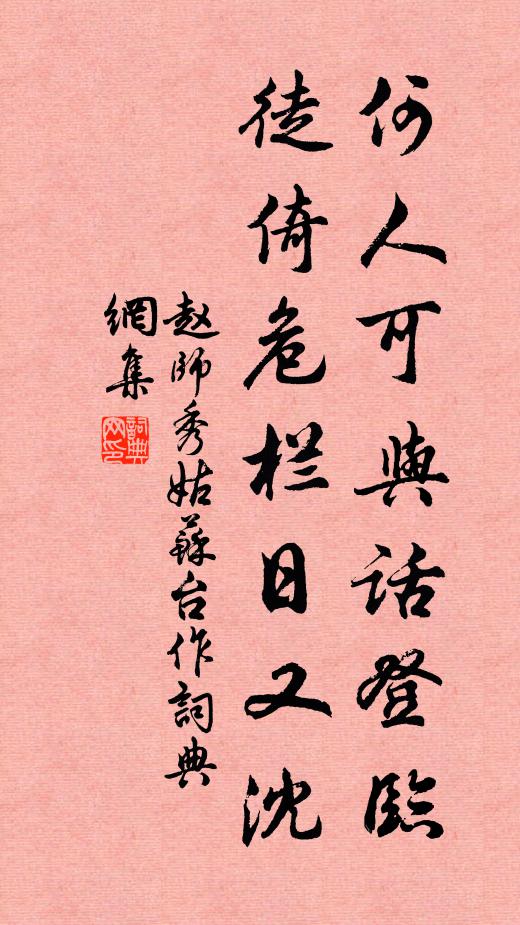 何人可與话登臨
徒倚危栏日又沈
赵師秀姑蘇台作詞典
網集
詞典網印